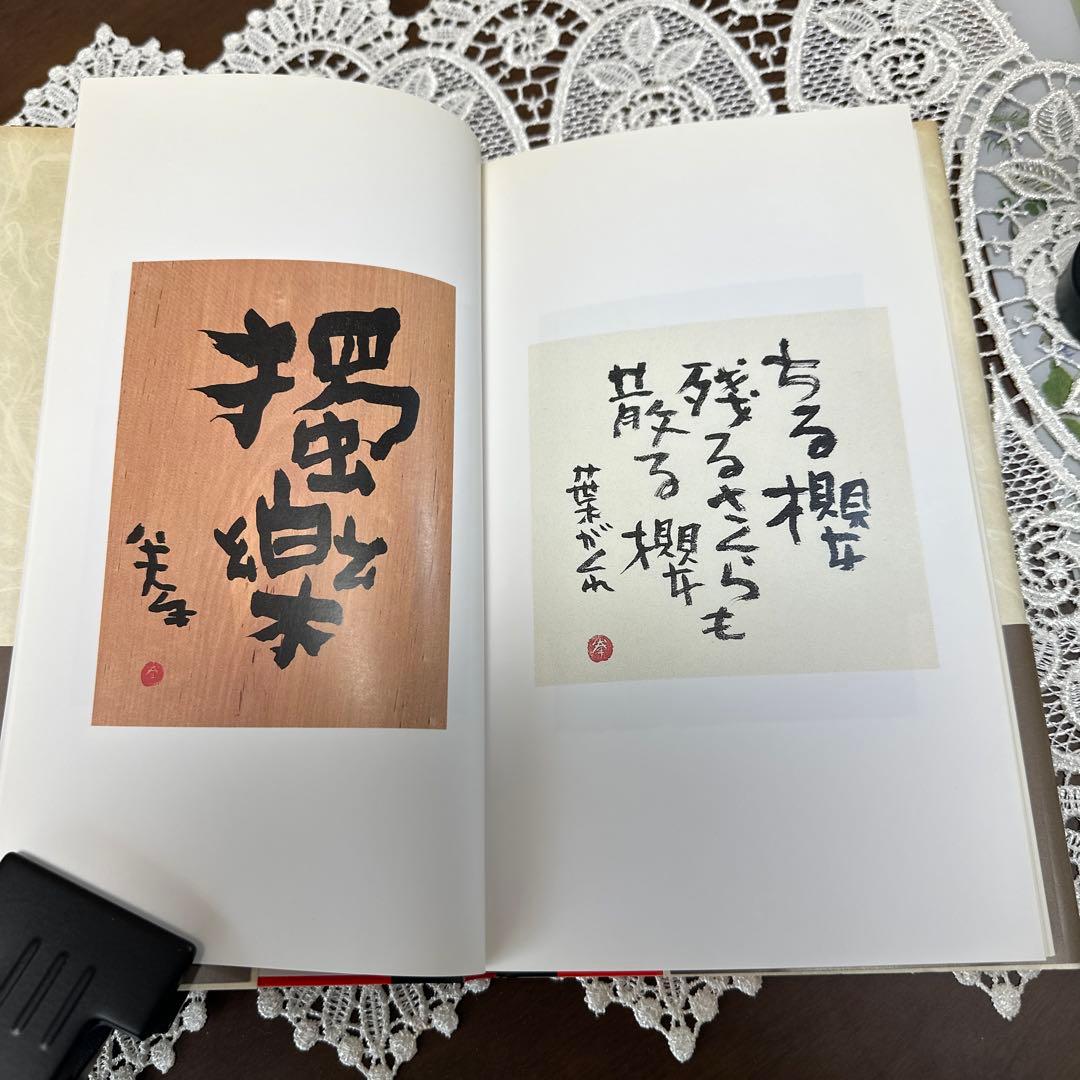 ちる櫻
残るさくらも
散る櫻
葉がくれ
獨樂